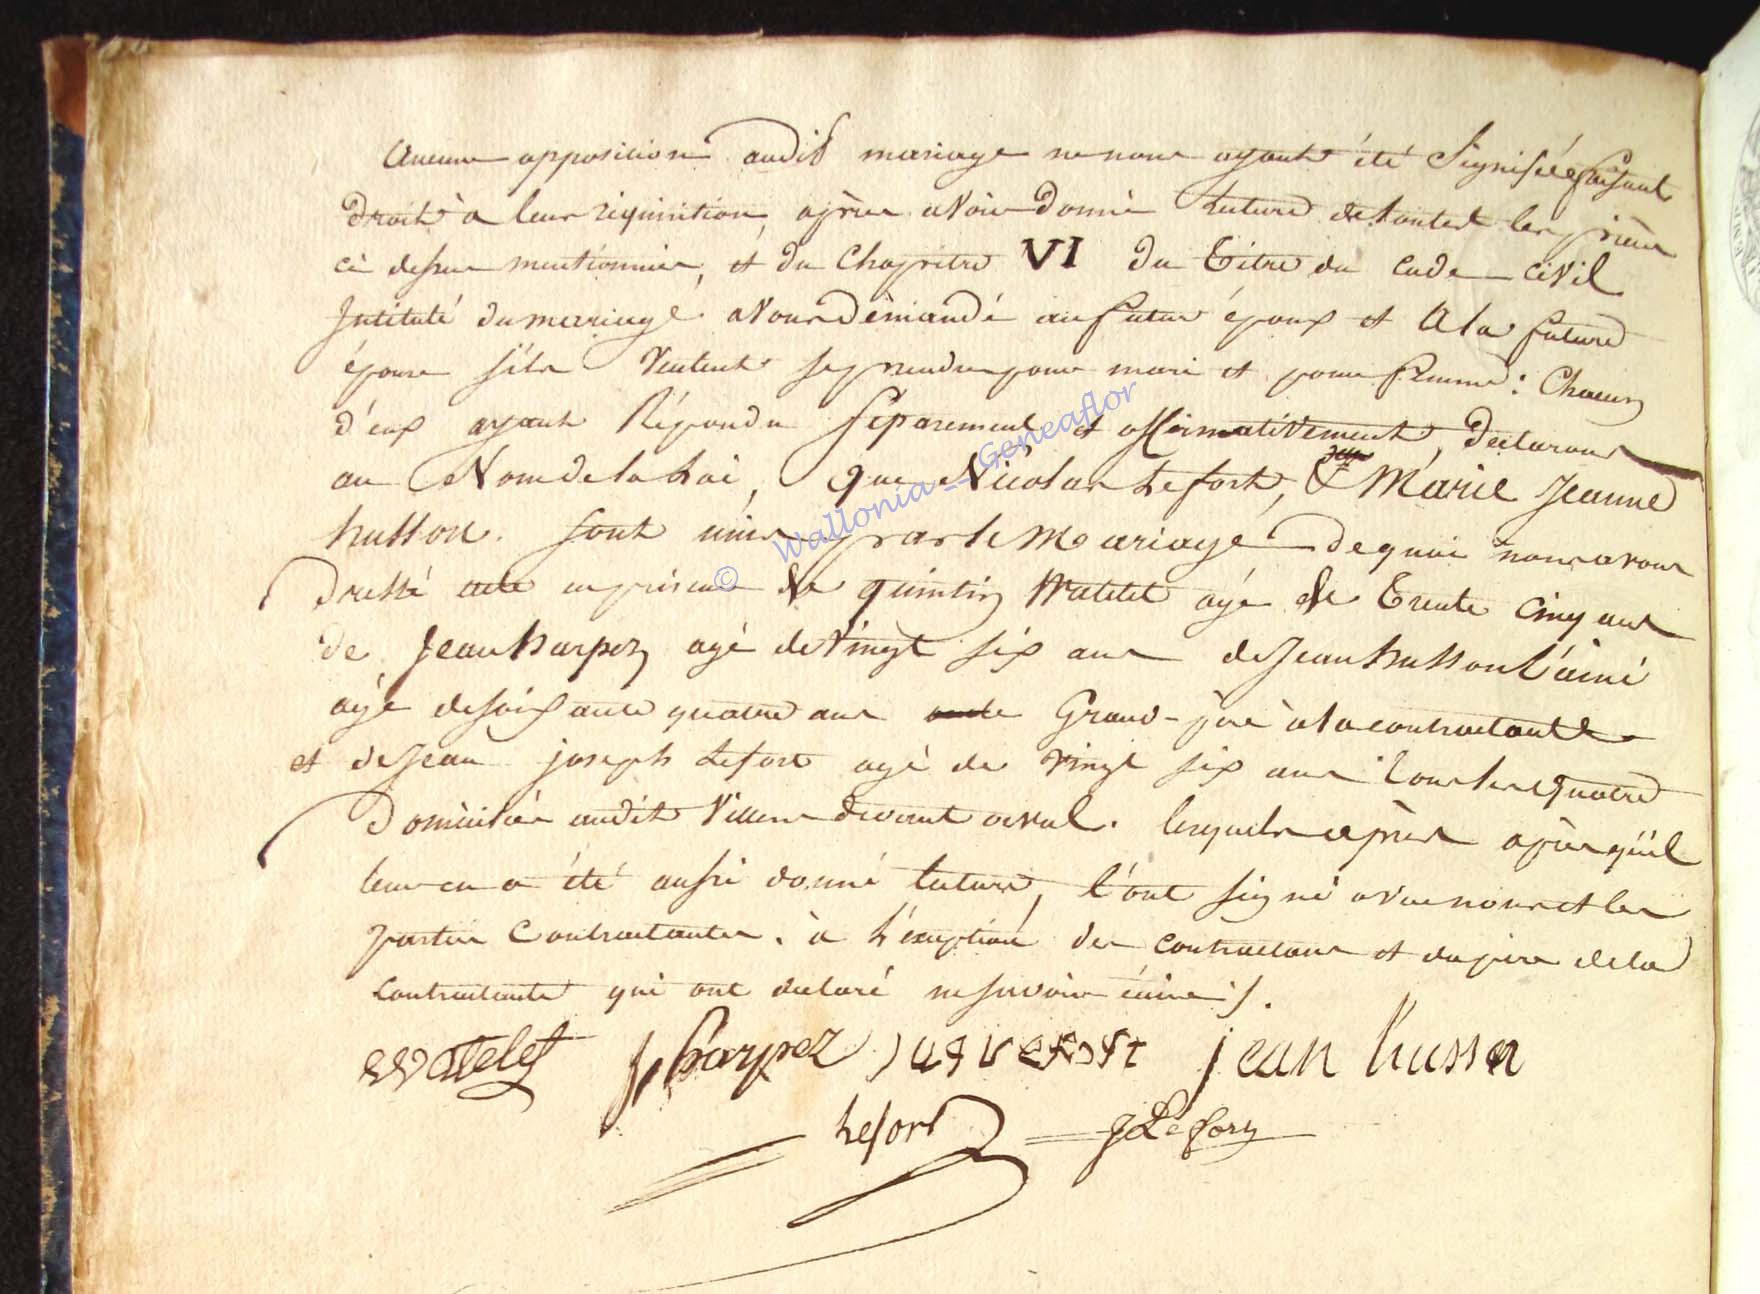 Aucune opposition audit mariage ne nous ayant été Signifiée faisant
Droit à leur requisition, après avoir Donné Lecture de toutes les pièces
ci dessus mentionnées, et du Chapitre VI du Titre du code civil
Intitulé du mariage, avons Démandé au futur époux et A la future
épouse s'ils veulent se prendre pour mari et pour femme : Chacun
d'eux ayant Répondu séparement et affirmativement, Déclarons
au Nom de la Loi, que Nicolas Lefort, & Marie Jeanne
husson. sont unis par le Mariage De quoi nous avons
Dressé acte en présence de quintin Watelet agé de Trente cinq ans
de Jean harpez agé de Vingt six ans de Jean husson l'ainé
agé de soixante quatre ans Grand-père à la contractante
et de Jean joseph Lefort agé de vingt six ans tous les quatre
Domiciliés audit Villers devant orval. lesquels après après qu'il
leur en a été aussi donné lecture, l'ont signé avec nous et les
parties Contractantes. à l'exeption des contractans et du père de la
contractante qui ont déclaré ne savoir écrire ;/.
Watelet J harpez jean husson
Lefort J Lefort
© Wallonia - Geneaflor